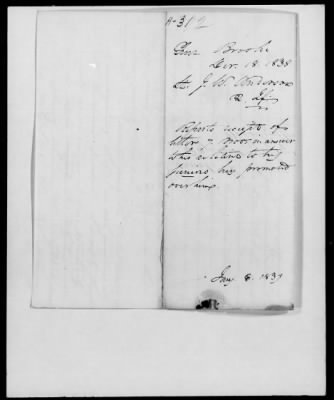 A-312
Brooke
Dec. 18. 1838
Lt. J. W. Anderson
2 Inf.
Reports receipt of
letter
this relations to his
juniors being promoted
over him.
Jany 8. 1839